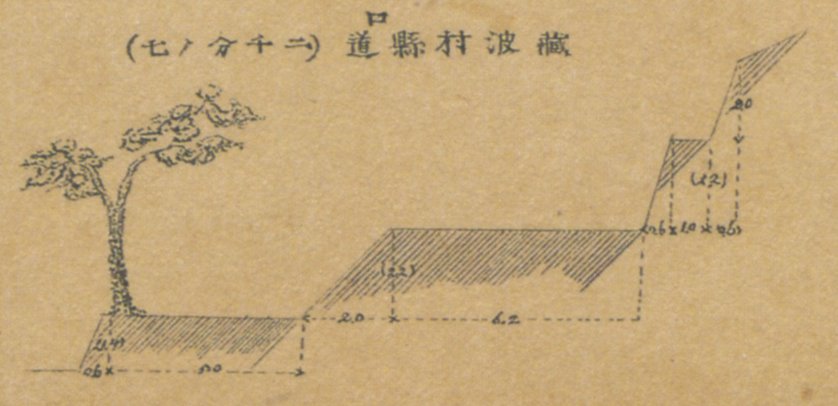 ロ
藏波村縣道(二千分ノ七)
2.0
(1.2)
0.6 1.0 0.6
(2.2)
2.0 6.2
(1.4)
0.6 5.0